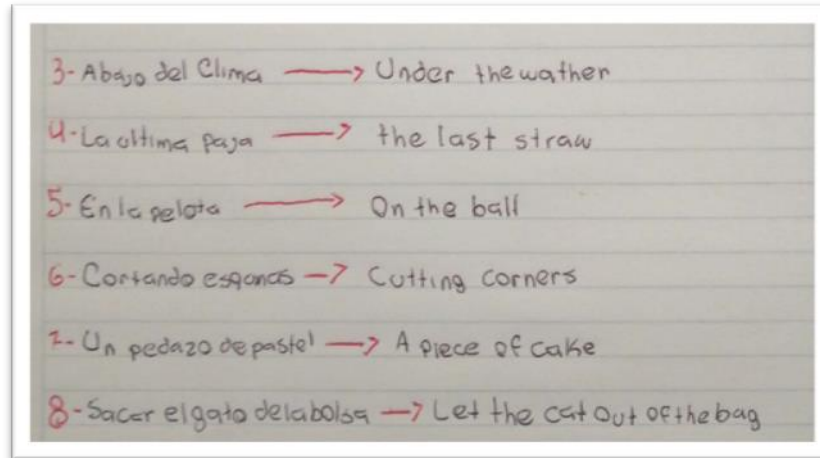 3- Abajo del Clima → Under the wather
4- La ultima paja → the last straw
5- En la pelota → On the ball
6- Cortando esqanas → Cutting corners
7- Un pedazo de pastel → A piece of cake
8- Sacar el gato de la bolsa → Let the cat out of the bag